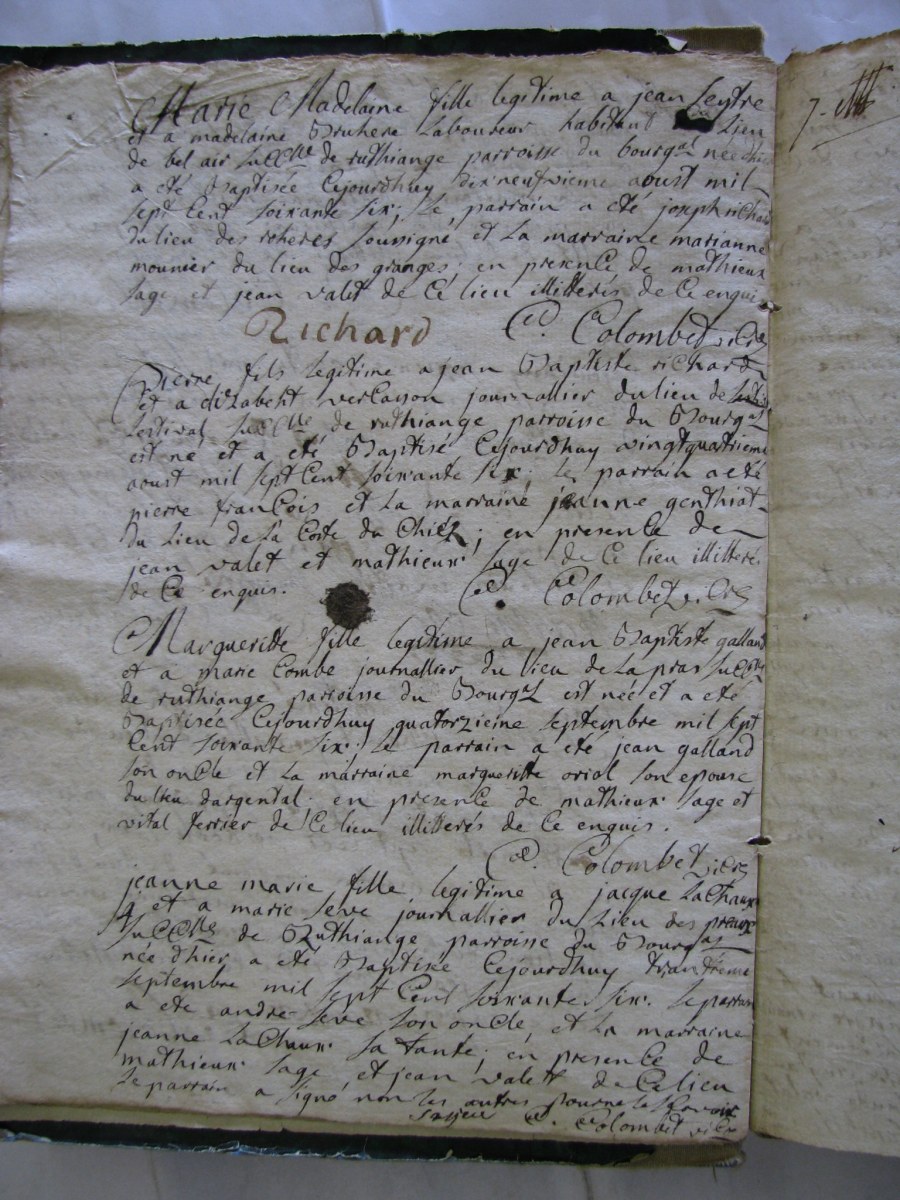 Marie Madelaine fille legitime a jean Leytre
et a madelaine Bruhere Laboureur habitant Lieu
de bel air succlle de ruthiange parroisse du bourgal née dhier
a eté Baptisée Cejourdhuy dixneufvieme aoust mil
sept Cent soixante six; le parrain a eté joseph richard
du lieu des roheres soussigné et La marraine marianne
mounier du lieu des granges; en presence de mathieux
sage et jean valet de Cé lieu illitterés de Ce enquis
Richard Colombet vicre
Pierre fils legitime a jean Baptiste richard
et a elizabeht vercasson journallier du lieu de
lestival succlle de ruthiange parroisse du Bourgal
est né et a eté Baptisé Cejourdhuy vingtquatrieme
aoust mil sept Cent soixante six; le parrain a eté
pierre françois et La marraine jeanne genthiat
du Lieu de La Coste du Chiéz; en presence de
jean valet et mathieux sage de Ce lieu illitteré
de Ce enquis. Colombet vicre
Margueritte fille legitime a jean Baptiste galland
et a marie Combe journallier du lieu de La pras succlle
de ruthiange parroisse du Bourgl est née et a eté
Baptisée Cejourdhuy quatorzieme septembre mil sept
Cent soixante six: le parrain a eté jean galland
son oncle et La marraine margueritte oriol son epouse
du lieu dargental. en presence de mathieux sage et
vital ferrier de Ce lieu illitterés de Ce enquis.
Colombet vicre
jeanne marie fille legitime a jacque LaChaux
et a marie seve journallier du Lieu des preaux
succlle de Ruthiange parroisse du Bourgal
née dhier a eté Baptisée Cejourdhuy trantieme
septembre mil sept Cent soixante six: le parrain
a eté andre seve son oncle, et La marraine
jeanne LaChaux sa tante; en presence de
mathieux sage et jean valett de Ce lieu
Le parrain a signé non les autres pour ne le sçavoir
Colombet vicre